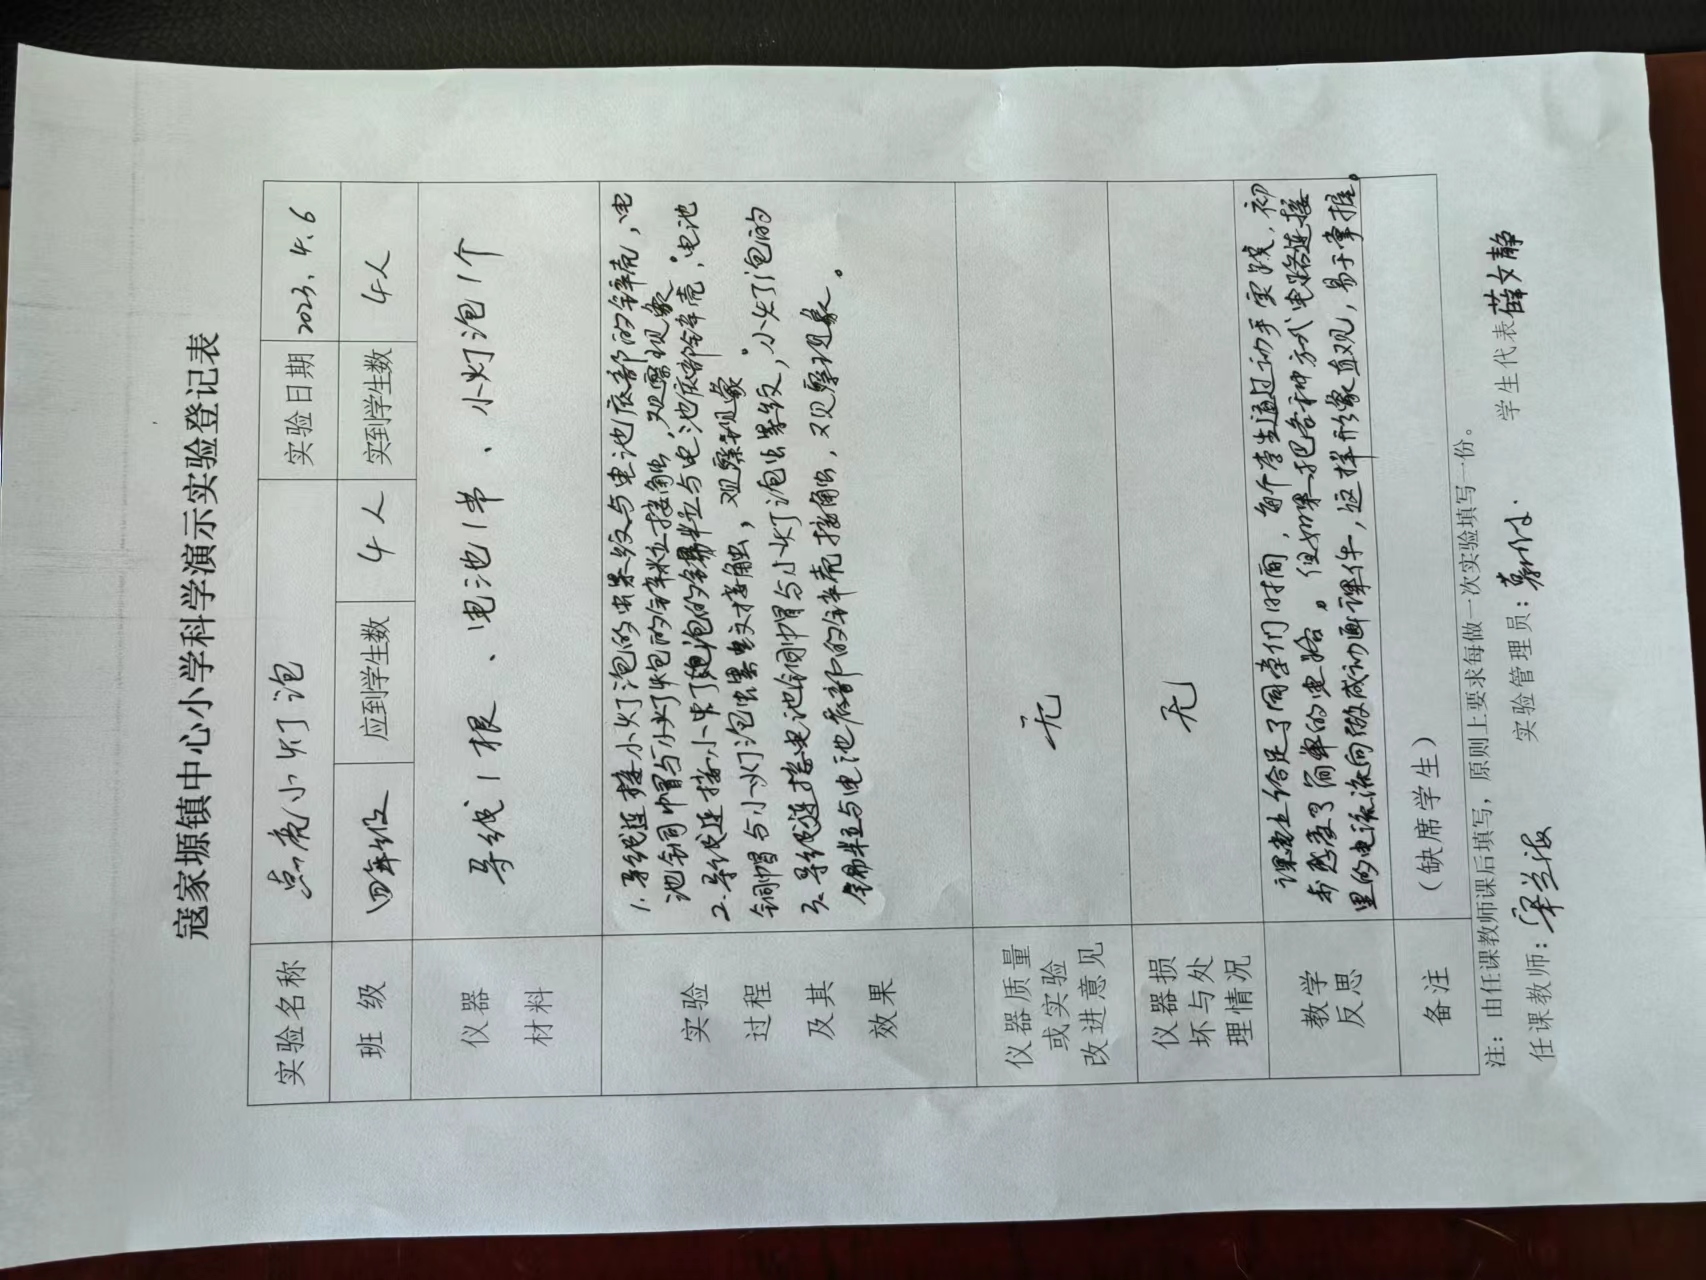 寇家塬镇中心小学科学演示实验登记表
实验名称 点亮小灯泡 实验日期 2023.4.6
班 级 四年级 应到学生数 4人 实到学生数 4人
仪器
材料
导线1根、电池1节、小灯泡1个
实验
过程
及其
效果
1.导线连接小灯泡的螺纹与电池底部的锌壳,电
池铜帽与小灯泡的锌粒接触,观察现象
2.导线连接小灯泡的锡粒与电池底部锌壳,电池
铜帽与小灯泡螺纹接触,观察现象
3.导线连接电池铜帽与小灯泡螺纹,小灯泡的
锡粒与电池底部的锌壳接触,观察现象。
仪器质量
或实验
改进意见
无
仪器损
坏与处
理情况
无
教学
反思
课堂上给足了同学们时间,每个学生通过动手实践,初
步感受了简单的电路。但如果把各种方式电路连接
里的电流流向做成动画课件,这样形象直观,易于掌握。
备注 (缺席学生)
注:由任课教师课后填写,原则上要求每做一次实验填写一份。
任课教师: 实验管理员: 学生代表 薛文静